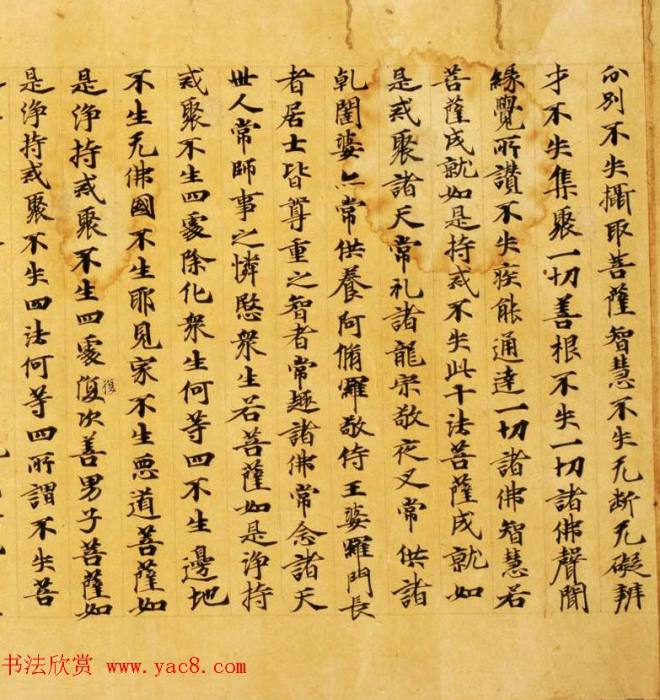 分別不失攝取菩薩智慧不失无断无礙辨
才不失集聚一切善根不失一切諸佛聲聞
緣覺所讚不失疾能通達一切諸佛智慧若
菩薩成就如是持戒不失此十法菩薩成就如
是戒聚諸天常礼諸龍宗敬夜叉常供諸
乹闥婆亦常供養阿脩羅敬侍王婆羅門長
者居士皆尊重之智者常趣諸佛常念諸天
世人常師事之憐愍衆生若菩薩如是淨持
戒聚不生四處除化衆生何等四不生邊地
不生无佛國不生耶見家不生惡道菩薩如
是淨持戒聚不生四處復次善男子菩薩如
復
是淨持戒聚不失四法何等四所謂不失菩
书法欣赏 www.yac8.com